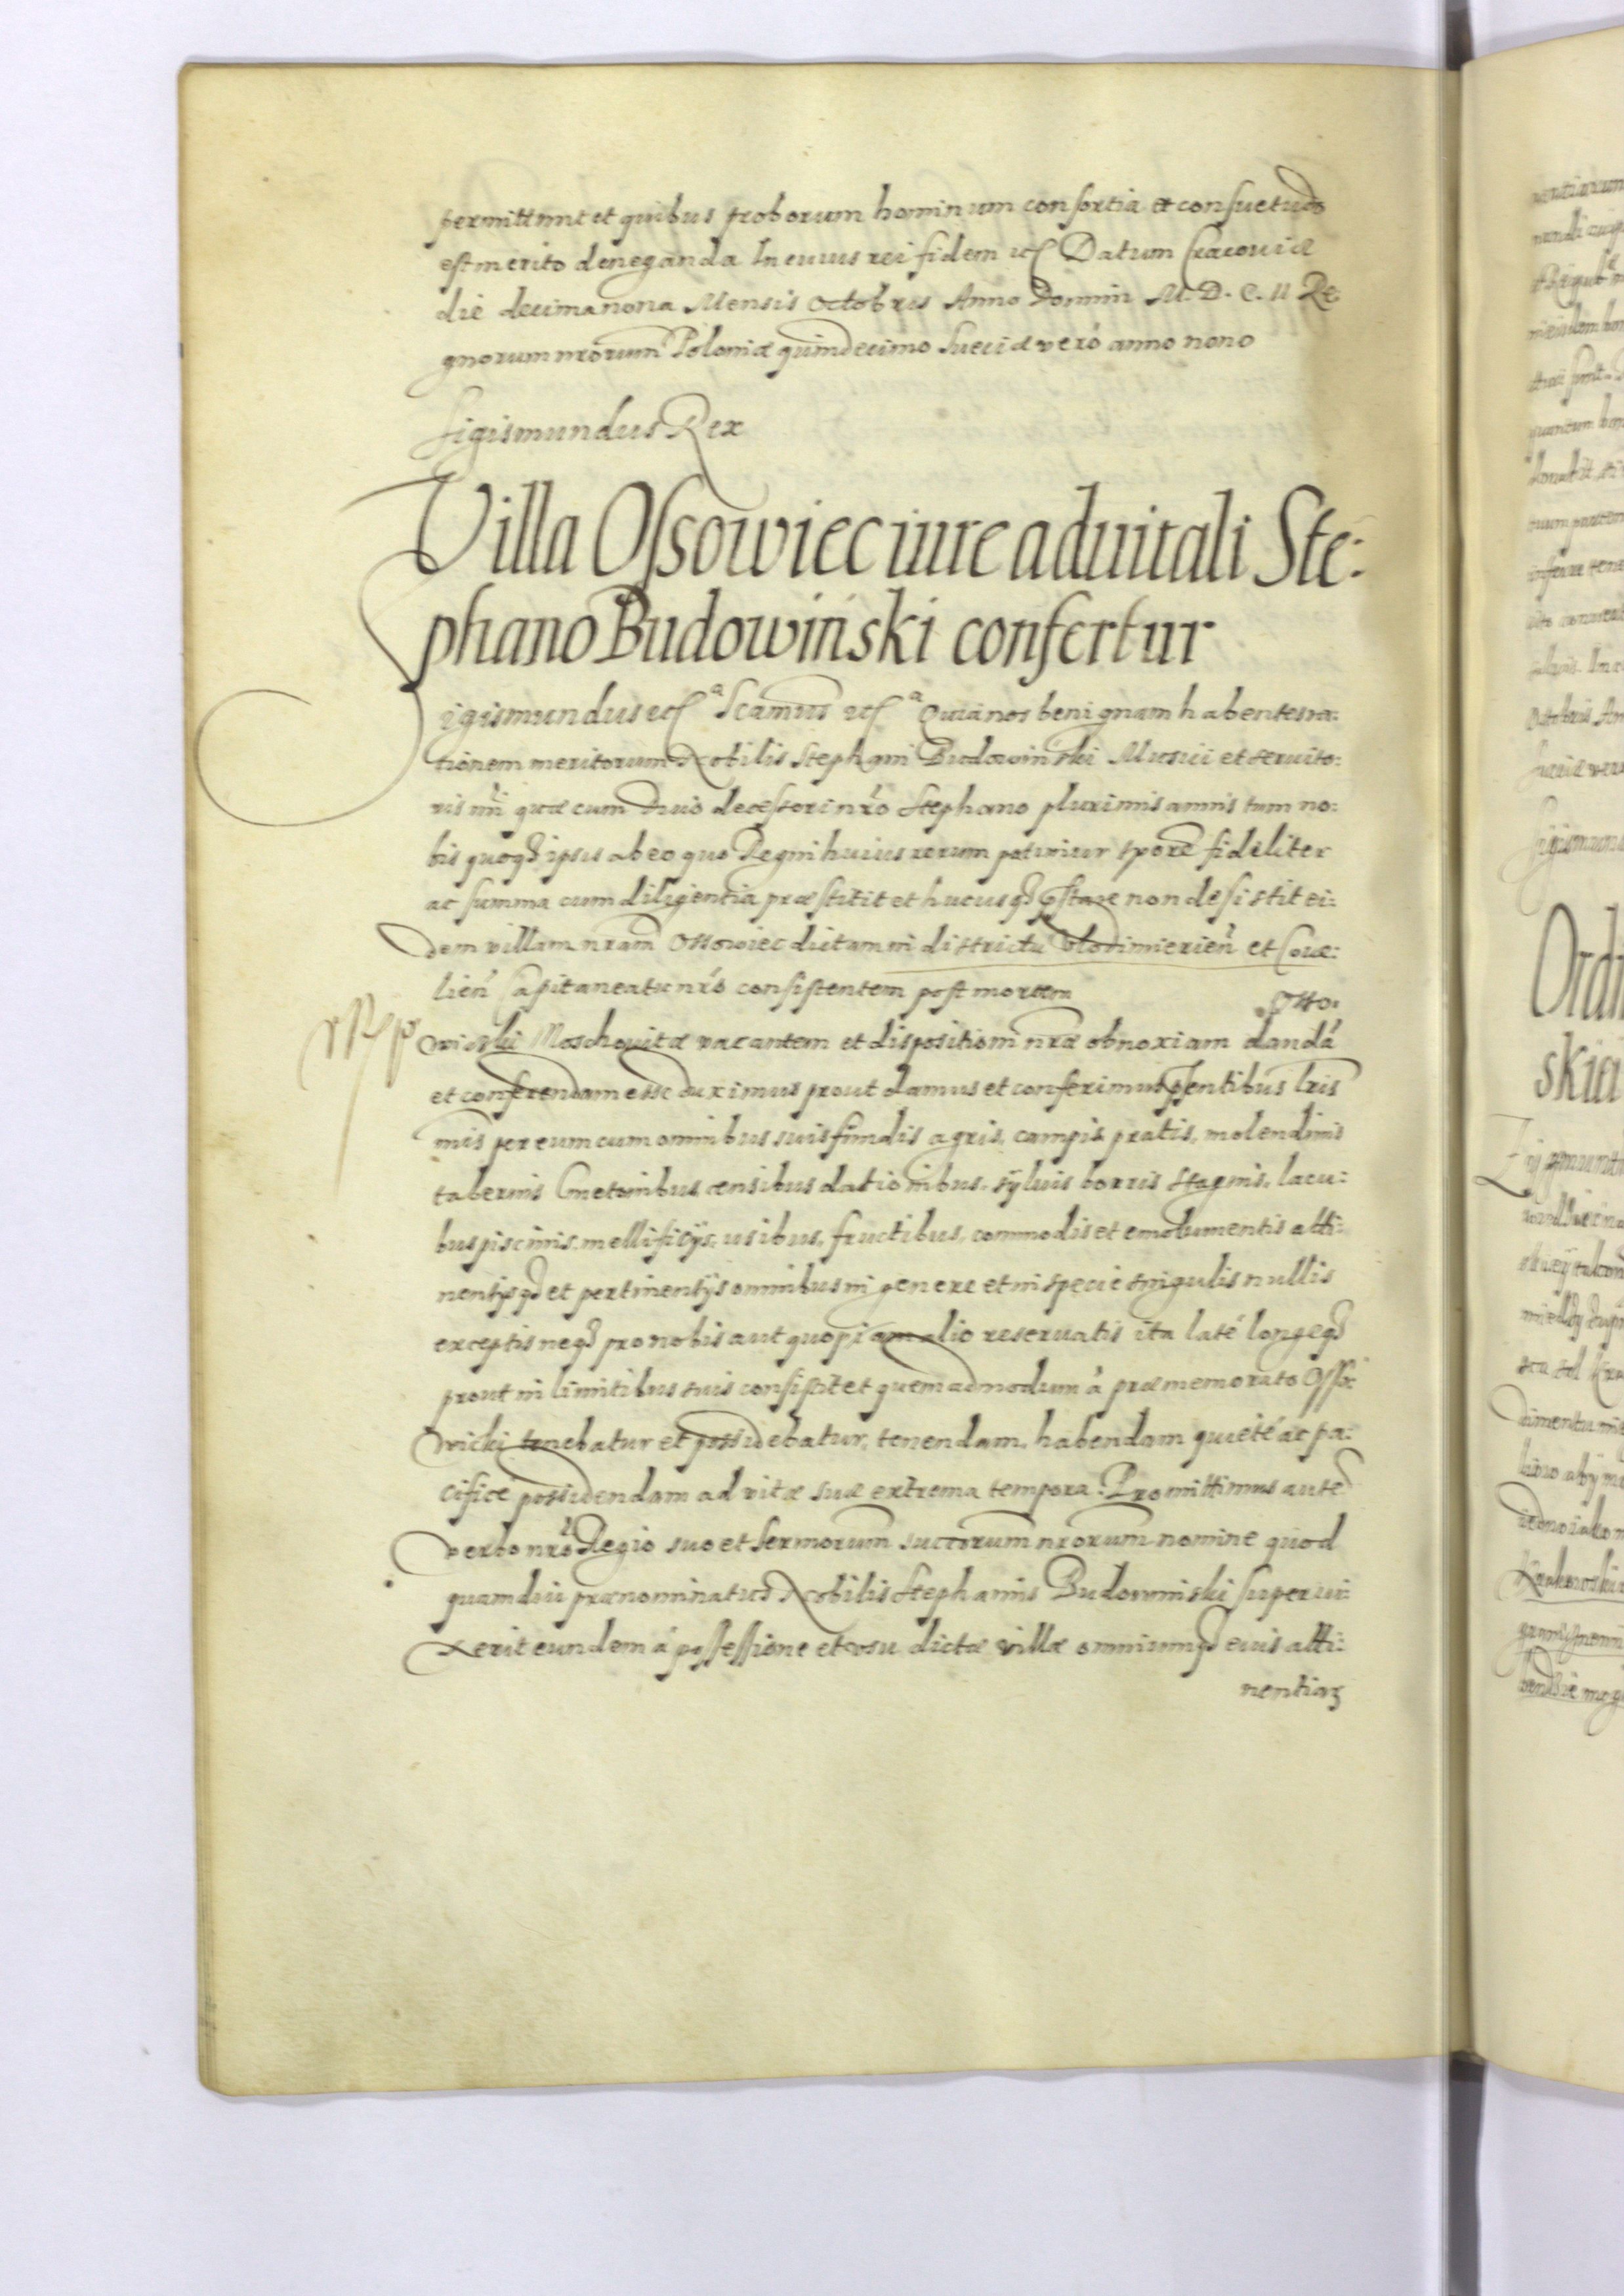 permittunt et quibus proborum hominum consortia et consuetudo
est merito deneganda In cuius rei fidem etc Datum Cracoviæ
die decimanona Mensis Octobris Anno Domini M. D. C. II Re
gnorum nrorum Poloniæ quindecimo Sueciæ veró anno nono
Sigismundus Rex
Villa Ossowiec iure aduitali Ste:
phano Budowiński confertur
Sigismundus etc ᵃ Scamus etc ᵃ Quia nos benignam habentes ra:
tionem meritorum Nobilis Stephani Budowinski Musici et seruito:
ris nri quæ cum Diuo decessori nro Stephano plurimis annis tum no:
bis quoqз ipsis ab eo quo Regni huius rerum potimur tpore fideliter
ac summa cum diligentia præstitit et hucusqз pstare non desistit ei:
dem villam nram Ossowiec dictam in districtu Vlodimierien et Coue:
lien Capitaneatu nro consistentem post mortem Osso:
wicki Moschouitæ vacantem et dispositioni nræ obnoxiam dandá
et conferendam esse duximus prout damus et conferimus pntibus lris
nris per eum cum omnibus suis fundis agris, campis pratis, molendinis
tabernis Cmetonibus censibus dationibus, syluis borris stagnis, lacu:
bus piscinis, mellificijs, usibus, fructibus, commodis et emolumentis atti:
nentijsqз et pertinentijs omnibus in genere et in specie singulis nullis
exceptis neqз pro nobis aut quopiam alio reseruatis ita laté longeqз
prout in limitibus suis consistit et quemadmodum á præmemorato Osso
wicki tenebatur et possidebatur, tenendam, habendam quieté ac pa:
cifice possidendam ad vitæ suæ extrema tempora. Promittimus auté
verbo nro Regio suo et Sermorum succrorum nrorum nomine quod
quamdiu prænominatus Nobilis Stephanus Budowinski superui:
xerit eundem á possessione et vsu dictæ villæ omniumqз eius atti:
nentiaꝝ